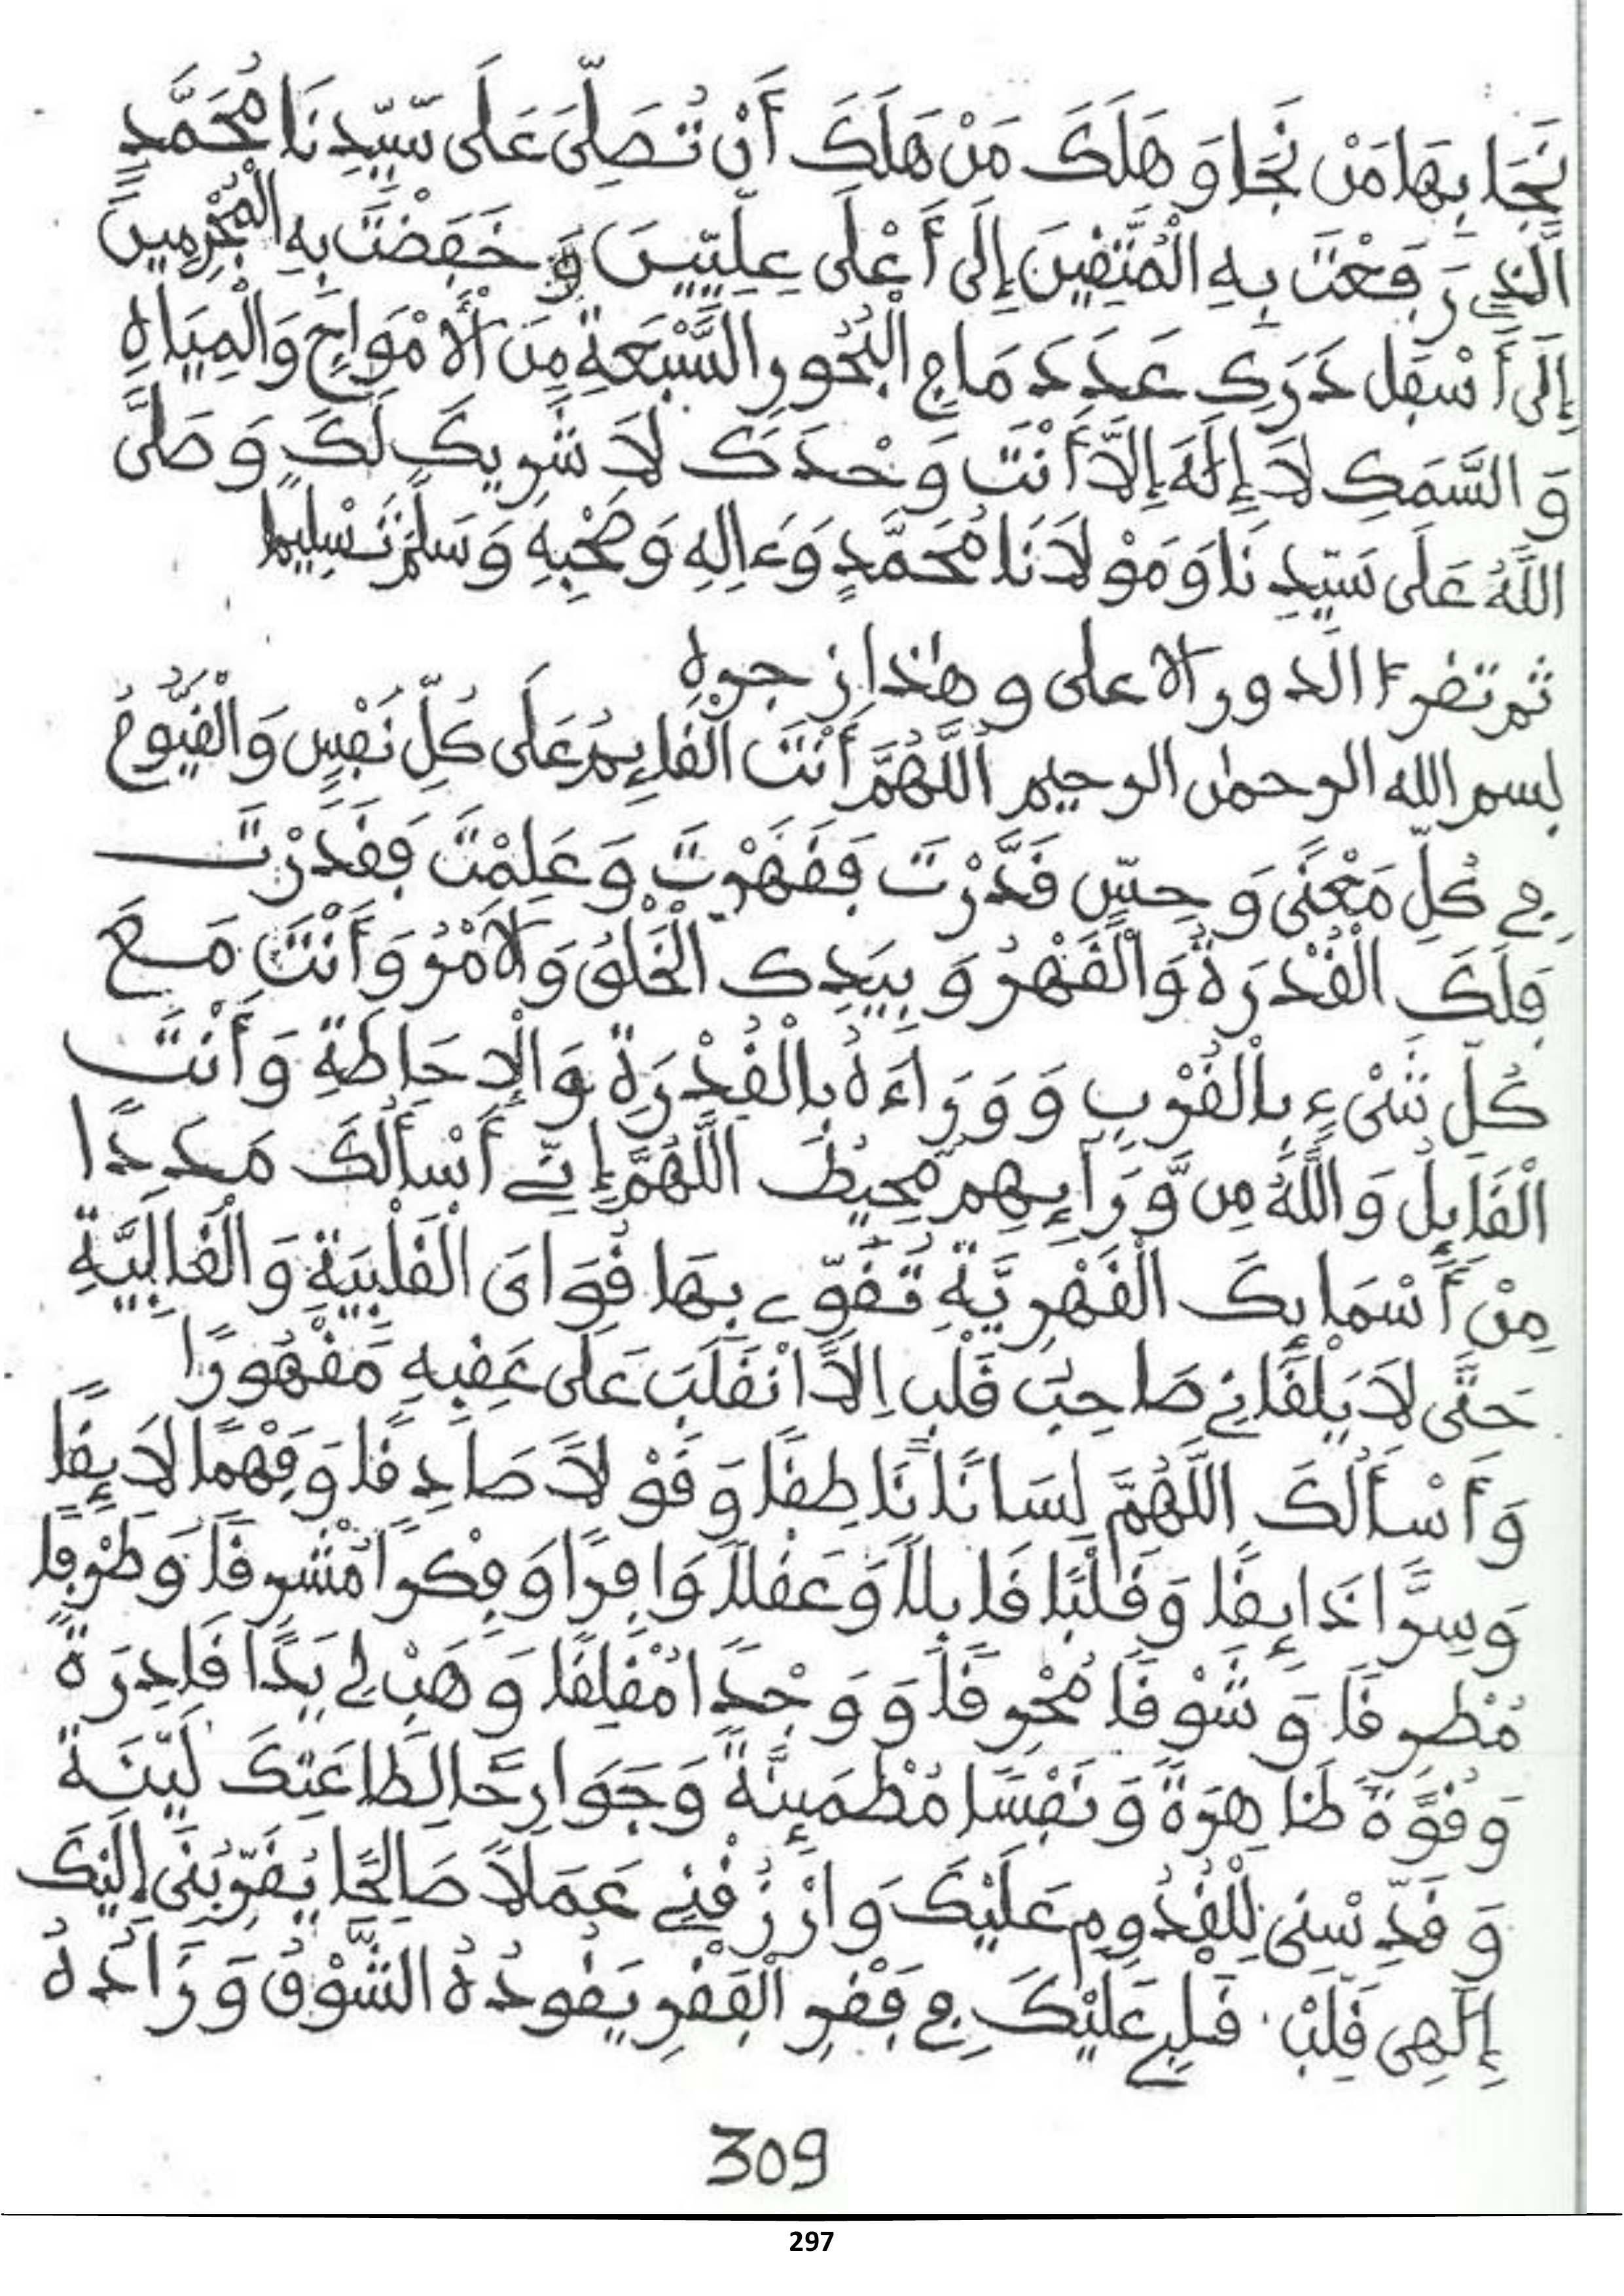 نَجَا بِهَا مَنْ نَجَا وَ هَلَكَ مَنْ هَلَكَ أَنْ تُصَلِّيَ عَلَى سَيِّدِنَا مُحَمَّدٍ
الَّذِي رَفَعْتَ بِهِ الْمُتَّقِينَ إِلَى أَعْلَى عِلِّيِّينَ وَ خَفَضْتَ بِهِ الْمُجْرِمِينَ
إِلَى أَسْفَلِ دَرَكٍ عَدَدَ مَا فِي الْبُحُورِ السَّبْعَةِ مِنَ الْأَمْوَاجِ وَالْمِيَاهِ
وَ السَّمَكِ لَا إِلَهَ إِلَّا أَنْتَ وَحْدَكَ لَا شَرِيكَ لَكَ وَ صَلَّى
اللَّهُ عَلَى سَيِّدِنَا وَ مَوْلَانَا مُحَمَّدٍ وَءَالِهِ وَصَحْبِهِ وَسَلَّمَ تَسْلِيمًا
ثم تقرءا الدور الاعلى و هذا زجره
بسم الله الرحمن الرحيم اللَّهُمَّ أَنْتَ الْقَائِمُ عَلَى كُلِّ نَفْسٍ وَالْقَيُّومُ
فِي كُلِّ مَعْنًى وَ حِسٍّ قَدَّرْتَ فَقَهَرْتَ وَ عَلِمْتَ فَقَدَرْتَ
فَلَكَ الْقُدْرَةُ وَالْقَهْرُ وَ بِيَدِكَ الْخَلْقُ وَالْأَمْرُ وَأَنْتَ مَعَ
كُلِّ شَيْءٍ بِالْقُرْبِ وَ وَرَاءَهُ بِالْقُدْرَةِ وَالْإِحَاطَةِ وَأَنْتَ
الْقَائِلُ وَاللَّهُ مِن وَّرَآئِهِم مُّحِيطٌ اللَّهُمَّ إِنِّي أَسْأَلُكَ مَدَدًا
مِنْ أَسْمَائِكَ الْقَهْرِيَّةِ تُقَوِّي بِهَا قُوَايَ الْقَلْبِيَةَ وَ الْقَالِبِيَّةِ
حَتَّى لَا يَلْقَانِي صَاحِبُ قَلْبٍ إِلَّا انْقَلَبَ عَلَى عَقِبِهِ مَقْهُورًا
وَ أَسْأَلُكَ اللَّهُمَّ لِسَانًا نَاطِقًا وَ قَوْلًا صَادِقًا وَفَهْمًا لَائِقًا
وَ سِرًّا ذَائِقًا وَ قَلْبًا قَابِلًا وَ عَقْلًا وَافِرًا وَ فِكْرًا مُشْرِقًا وَ طَرْفًا
مُطْرِقًا وَ شَوْقًا مُحْرِقًا وَ وَجْدًا مُقْلِقًا وَ هَبْ لِي يَدًا قَادِرَةً
وَ قُوَّةً ظَاهِرَةً وَ نَفْسًا مُطْمَئِنَّةً وَجَوَارِحًا لِطَاعَتِكَ لَيِّنَةً
وَ قَدِّسْنِي لِلْقُدُومِ عَلَيْكَ وَارْزُقْنِي عَمَلًا صَالِحًا يُقَرِّبُنِي إِلَيْكَ
إِلَهِي قَلْبُ قَلْبِي عَلَيْكَ فِي فَقْرِ الْفَقْرِ يَقُودُهُ الشَّوْقُ وَ زَادُهُ
309
297